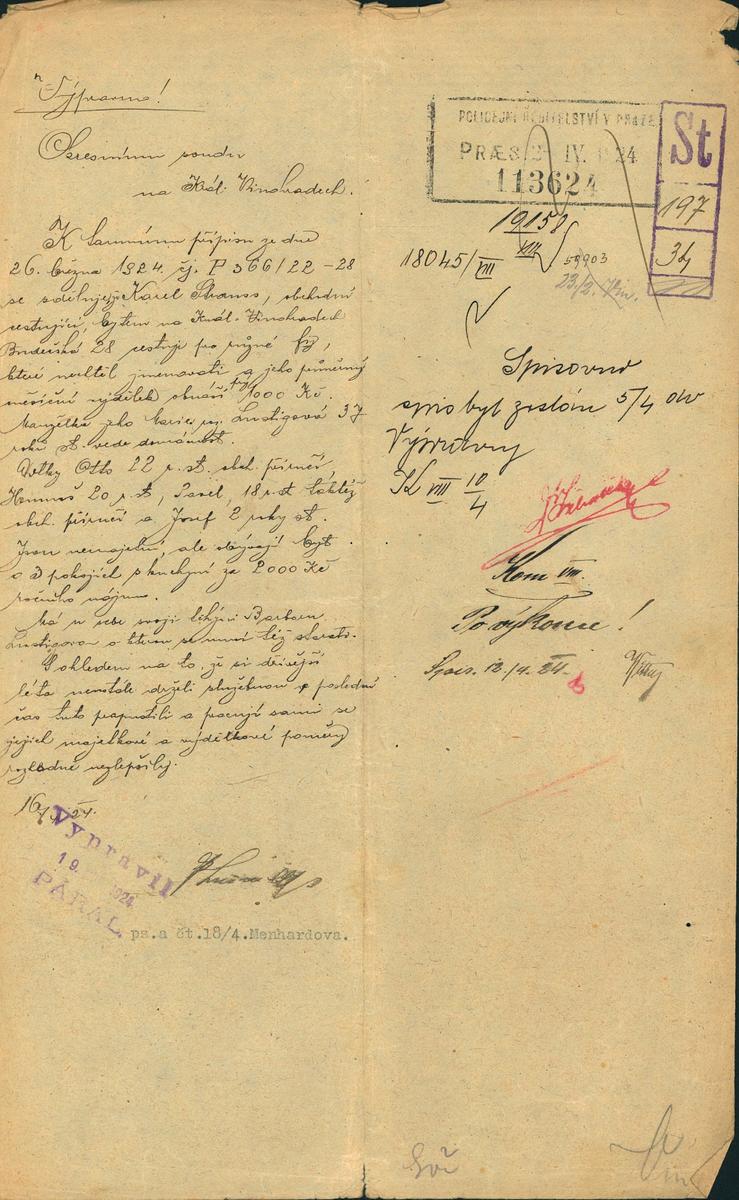 Výprava!
Okresnímu soudu
na Král. Vinohradech.
K tamnímu přípisu ze dne
26. března 1924. čj. P 366/22 - 28
se sděluje, že Karel Strauss, obchodní
cestující, bytem na Král. Vinohradech
28 cestuje pro různé fy,
které nechtěl jmenovati a jeho průměrný
měsíční výdělek obnáší 1000 Kč.
Manželka jeho Marie, roz. Lustigová 37
roků st. vede domácnost.
Dítky Otto 22 r. st. obch. příručí,
Hanuš 20 r. st., Pavel, 18 r. st. taktéž
obch. příručí a Josef 2 roky st.
Jsou nemajetní, ale obývají byt
o 3 pokojích s kuchyní za 2000 Kč
ročního nájmu.
Má u sebe svoji tchýni Barbaru
Lustigovou o kterou se musí též starati.
S ohledem na to, že si dřívější
léta neustále drželi služebnou a poslední
čas tuto propustili a pracují sami se
jejich majetkové a výdělkové poměry
rozhodně nezlepšily.
16/4 24.
Vypravil
19. 1924
PÁRAL
ps.a čt.18/4.Menhardova.
POLICEJNÍ ŘEDITELSTVÍ V PRAZE
PRÆS. 2 IV. 1924
113624
St
197
34
19158
VIII
18045/VIII
59903
23/2.
Spisovna
spis byl zaslán 5/4 do
Výpravny
K VIII 10/4
Kom VIII.
Po výkonu!
Spis. 12./4. 24.